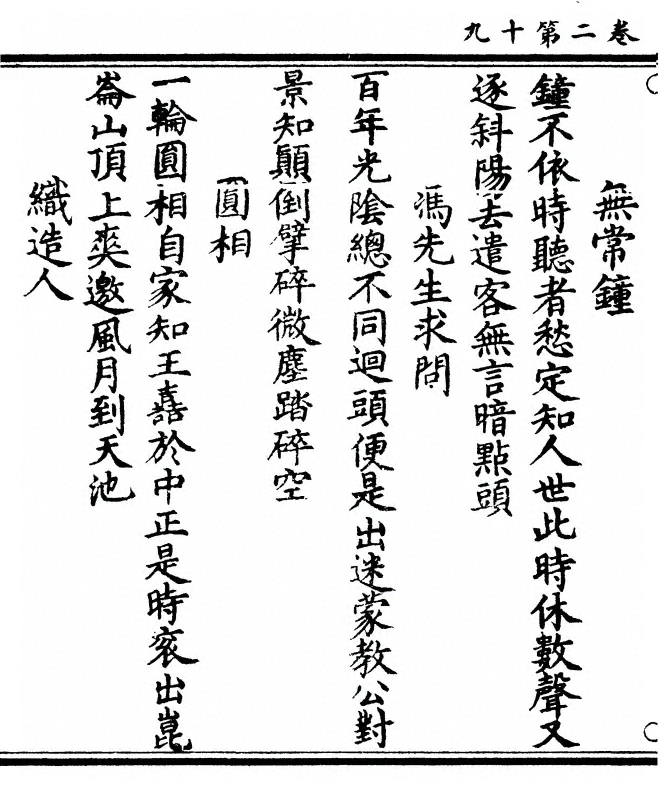 卷二第十九
無常鐘
鐘不依時聽者愁定知人世此時休數聲又
逐斜陽去遣客無言暗點頭
馮先生求問
百年光陰總不同迴頭便是出迷蒙教公對
景知顛倒擘碎微塵踏碎空
圓相
一輪圓相自家知王嚞於中正是時衮出崑
崙山頂上爽邀風月到天池
織造人